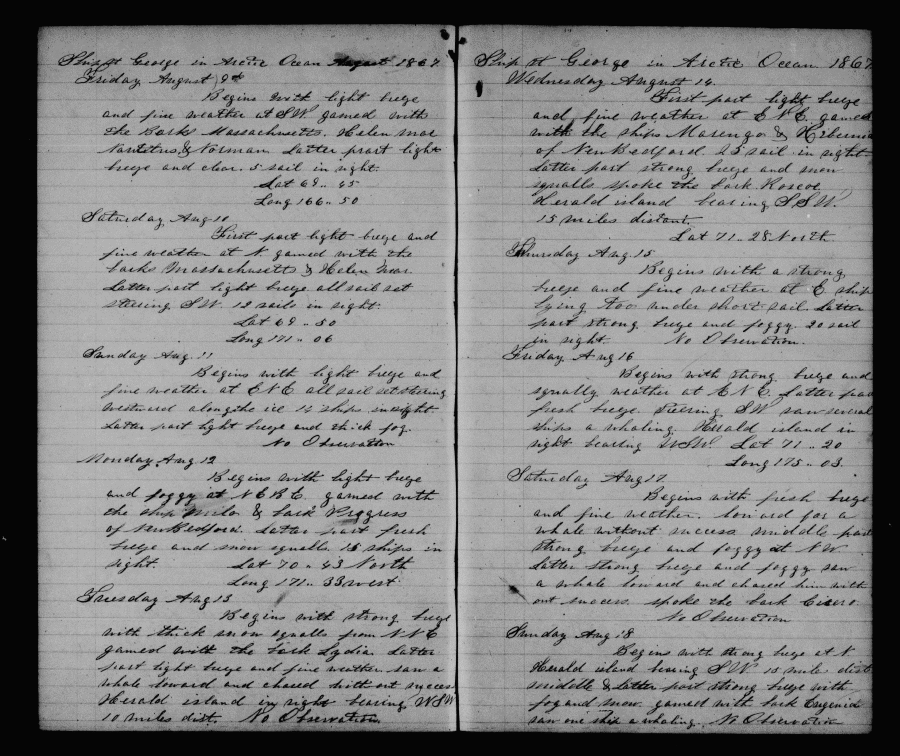 Ship St George in Arctic Ocean August 1867
Friday August 9th
Begins with light breze
and fine weather at S.W. gamed with
the Barks Massachusetts. Helen mar
& Norman Latter prart light
breze and clear. 5 sail in sight.
Lat 69 .. 45
Long 166 .. 50
Saturday Aug 10
First part light breze and
fine weather at N. gamed with the
barks Massachusetts & Helen mar
Latter part light breze all sail set
stearing S.W. 12 sails in sight.
Lat 69 .. 50
Long 171 .. 06
Sunday Aug. 11
Begins with light breze and
fine weather at E N E all sail set stering
westward along the ice 14 ships in sight
Latter part light breze and thick fog.
No Observation
Monday Aug 12
Begins with light breze
and foggy at N E B E. gamed with
the ship Milo & bark Progress
of New Bedford. Latter part fresh
breze and snow squalls. 15 ships in
sight. Lat 70 .. 43 North
Long 171 .. 33 west
Tuesday Aug 13
Begins with strong breze
with thick snow squalls from N N E
gamed with the bark Lydia Latter
part light breze and fine weather saw a
whale loward and chased without success
Herald island in sight bearing W S W
10 miles dist. No Observation
Ship St George in Arctic Ocean 1867
Wednesday August 14.
First part light breeze
and fine weather at E N E. gamed
with the ships Marengo & Hibernia
of New Bedford. 25 sail in sight
Latter part strong breze and snow
squalls spoke the bark Roscoe
Herald island bearing S S W.
15 miles distant.
Lat 71 .. 28 North
Thursday Aug. 15
Begins with a strong
breeze and fine weather at E ship
lying too under short sail. Latter
part strong breze and foggy. 20 sail
in sight. No Observation.
Friday Aug 16
Begins with strong breze and
squally weather at E N E. Latter part
fresh breze stearing S W saw several
ships a whaling. Herald island in
sight bearing W S W. Lat 71 .. 20
Long 175 .. 03.
Saturday Aug 17
Begins with fresh breze
and fine weather. lowared for a
whale without success middle part
strong breze and foggy at N W.
Latter strong breze and foggy saw
a whale loward and chased him with
out success. spoke the bark Cicero.
No Observation
Sunday Aug 18
Begins with strong breze at N.
Herald island bearing S W. 15 mile dist
middle & Latter part strong breze with
fog and snow. gamed with bark Eugenia
saw one ship a whaling. No Observation